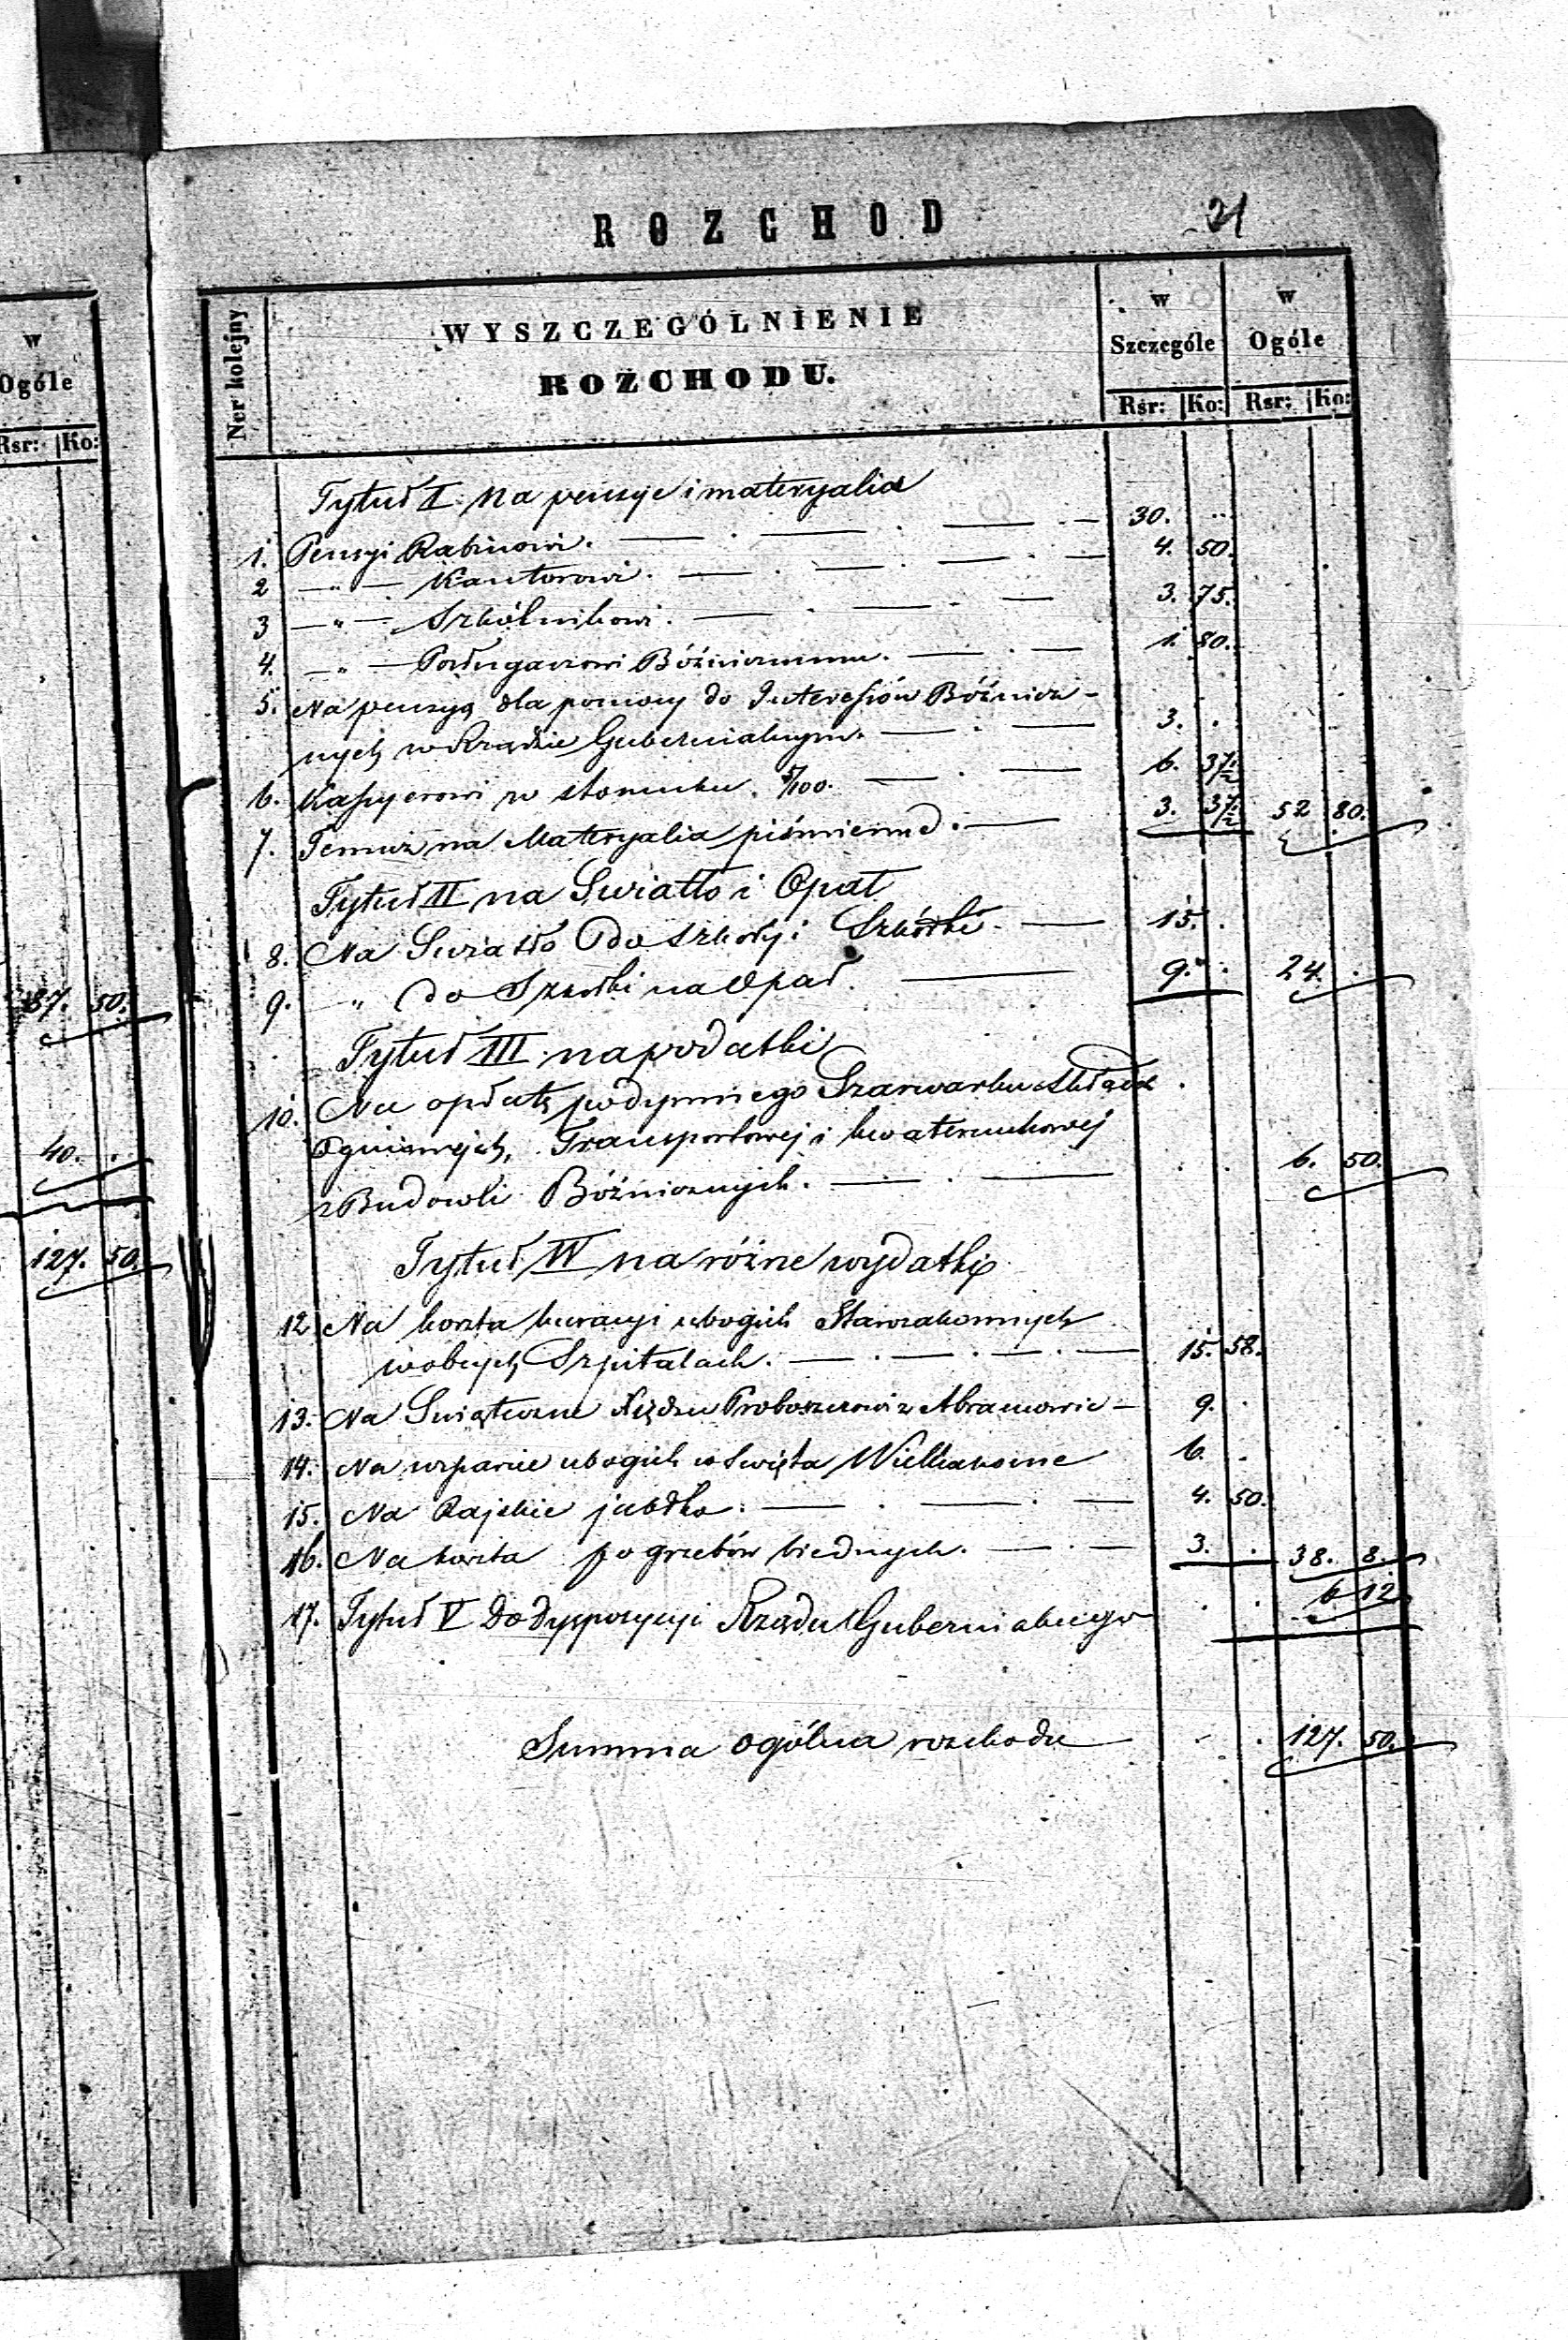 w
Ogóle
Rsr: Ko:
87. 50.
40. .
127. 50.
ROZCHOD
21
Ner kolejny
WYSZCZEGÓLNIENIE
ROZCHODU.
w Szczególe
w Ogóle
Rsr: Ko: Rsr: Ko:
Tytuł I. Na pensye i materyalia
1. Pensyi Rabinowi. 30. ..
2 — " — Kantorowi. 4. 50.
3 — " — Szkólnikowi. 3. 75.
4. — " — Posługaczowi Bóżnicznemu. 1. 80.
5. Na pensyą dla pomocy do Interesów Bóżnicz-
nych w Rządzie Gubernialnym. 3. .
6. Kassyerowi w stosunku 5/100. 6. 37 1/2
7. Temuż na Materyalia piśmienne. 3. 37 1/2 52 80.
Tytuł II na Swiatło i Opał
8. Na Swiatło do szkoły i Szkółki. 15. .
9. " do Szkółki na Opał. 9. . 24. .
Tytuł III na podatki
10. Na opłatę podymnego Szarwarku składek
Ogniowych, Transportowej i kwaterunkowej
z Budowli Bóżnicznych. 6. 50.
Tytuł IV na różne wydatki
12 Na koszta kuracyi ubogich Starozakonnych
w obcych Szpitalach. 15. 58.
13. Na Swiąteczne Xiędzu Proboszczowi z Abramowic 9. .
14. Na wsparcie ubogich w Święta Wielkanocne 6. .
15. Na Rajskie jabłko. 4. 50.
16. Na koszta pogrzebów biednych. 3. . 38. 8.
17. Tytuł V Do dyspozycyi Rządu Gubernialnego . . 6 12
Summa ogólna rozchodu . . 127. 50.